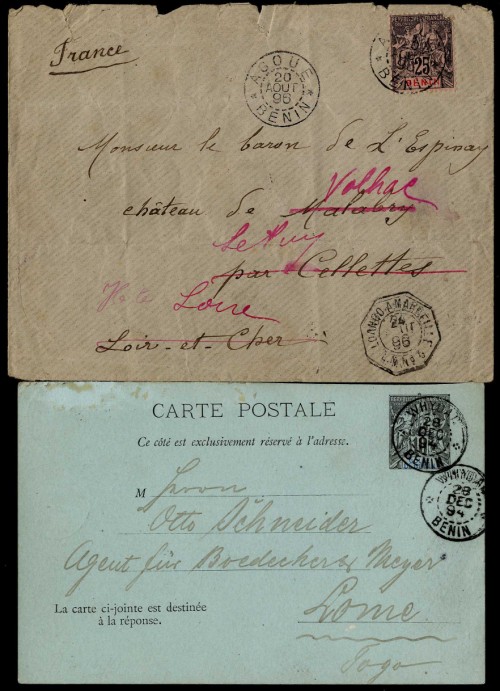 France
AGOUE
20
AOUT
95
BENIN
RÉPUBLIQUE FRANÇAISE
25
BENIN
Monsieur le baron de L'Espinay
Volhac
château de Malabry
Le Puy
par Cellettes
Hte Loire
Loir-et-Cher
LOANGO A MARSEILLE
L.M. Nº 6
CARTE POSTALE
Ce côté est exclusivement réservé à l'adresse.
WHYDAH
28
DEC
94
BENIN
M Herrn
WHYDAH
28
DEC
94
BENIN
Otto Schneider
Agent für Boedecker & Meyer
La carte ci-jointe est destinée
à la réponse.
Lome
Togo